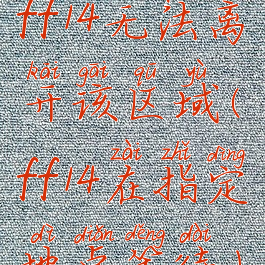 ff14无法离
kāi gāi qū yù
开该区域(
zài zhǐ dìng
ff14在指定
dì diǎn děng dài
地点等待)